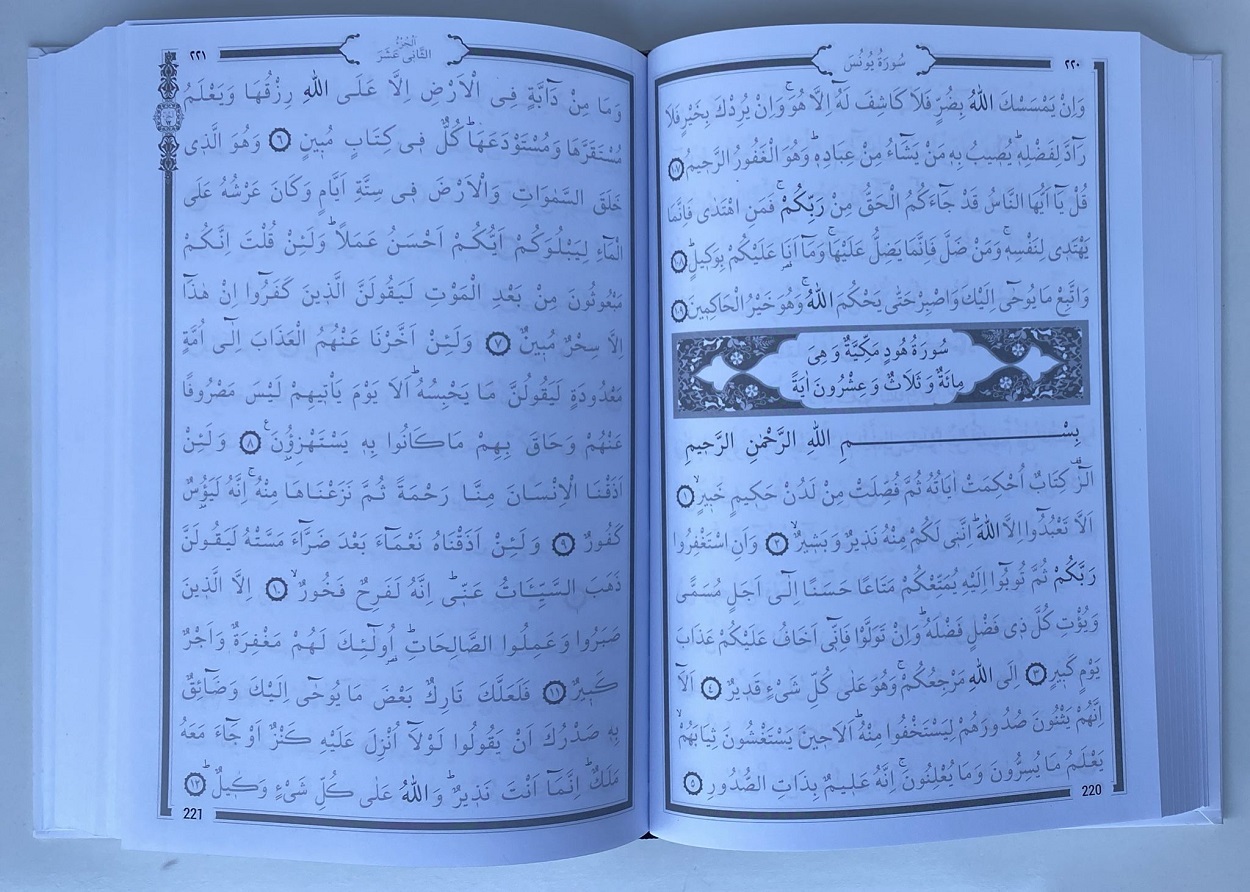 ٢٢٠
سُورَةُ يُونُسَ
وَاِنْ يَمْسَسْكَ اللّٰهُ بِضُرٍّ فَلَا كَاشِفَ لَهُٓ اِلَّا هُوَۚ وَاِنْ يُرِدْكَ بِخَيْرٍ فَلَا
رَٓادَّ لِفَضْلِه۪ۜ يُص۪يبُ بِه۪ مَنْ يَشَٓاءُ مِنْ عِبَادِه۪ۜ وَهُوَ الْغَفُورُ الرَّح۪يمُ ١٠٧
قُلْ يَٓا اَيُّهَا النَّاسُ قَدْ جَٓاءَكُمُ الْحَقُّ مِنْ رَبِّكُمْۚ فَمَنِ اهْتَدٰى فَاِنَّمَا
يَهْتَد۪ي لِنَفْسِه۪ۚ وَمَنْ ضَلَّ فَاِنَّمَا يَضِلُّ عَلَيْهَاۚ وَمَٓا اَنَا۬ عَلَيْكُمْ بِوَك۪يلٍۜ ١٠٨
وَاتَّبِعْ مَا يُوحٰٓى اِلَيْكَ وَاصْبِرْ حَتّٰى يَحْكُمَ اللّٰهُۚ وَهُوَ خَيْرُ الْحَاكِم۪ينَ ١٠٩
سُورَةُ هُودٍ مَكِّيَّةٌ وَ هِيَ
مِائَةٌ وَ ثَلَاثٌ وَ عِشْرُونَ اٰيَةً
بِسْمِ اللّٰهِ الرَّحْمٰنِ الرَّح۪يمِ
الٓرٰ۠ كِتَابٌ اُحْكِمَتْ اٰيَاتُهُ ثُمَّ فُصِّلَتْ مِنْ لَدُنْ حَك۪يمٍ خَب۪يرٍۙ ١
اَلَّا تَعْبُدُٓوا اِلَّا اللّٰهَۜ اِنَّن۪ي لَكُمْ مِنْهُ نَذ۪يرٌ وَبَش۪يرٌۙ ٢ وَاَنِ اسْتَغْفِرُوا
رَبَّكُمْ ثُمَّ تُوبُٓوا اِلَيْهِ يُمَتِّعْكُمْ مَتَاعًا حَسَنًا اِلٰٓى اَجَلٍ مُسَمًّى
وَيُؤْتِ كُلَّ ذ۪ي فَضْلٍ فَضْلَهُۜ وَاِنْ تَوَلَّوْا فَاِنّ۪ٓي اَخَافُ عَلَيْكُمْ عَذَابَ
يَوْمٍ كَب۪يرٍ ٣ اِلَى اللّٰهِ مَرْجِعُكُمْۚ وَهُوَ عَلٰى كُلِّ شَيْءٍ قَد۪يرٌ ٤ اَلَٓا
اِنَّهُمْ يَثْنُونَ صُدُورَهُمْ لِيَسْتَخْفُوا مِنْهُۜ اَلَا ح۪ينَ يَسْتَغْشُونَ ثِيَابَهُمْۙ
يَعْلَمُ مَا يُسِرُّونَ وَمَا يُعْلِنُونَۚ اِنَّهُ عَل۪يمٌ بِذَاتِ الصُّدُورِ ٥
220
اَلْجُزْءُ
الثَّانِي عَشَرَ
٢٢١
وَمَا مِنْ دَٓابَّةٍ فِي الْاَرْضِ اِلَّا عَلَى اللّٰهِ رِزْقُهَا وَيَعْلَمُ
مُسْتَقَرَّهَا وَمُسْتَوْدَعَهَاۜ كُلٌّ ف۪ي كِتَابٍ مُب۪ينٍ ٦ وَهُوَ الَّذ۪ي
خَلَقَ السَّمٰوَاتِ وَالْاَرْضَ ف۪ي سِتَّةِ اَيَّامٍ وَكَانَ عَرْشُهُ عَلَى
الْمَٓاءِ لِيَبْلُوَكُمْ اَيُّكُمْ اَحْسَنُ عَمَلًاۜ وَلَئِنْ قُلْتَ اِنَّكُمْ
مَبْعُوثُونَ مِنْ بَعْدِ الْمَوْتِ لَيَقُولَنَّ الَّذ۪ينَ كَفَرُٓوا اِنْ هٰذَٓا
اِلَّا سِحْرٌ مُب۪ينٌ ٧ وَلَئِنْ اَخَّرْنَا عَنْهُمُ الْعَذَابَ اِلٰٓى اُمَّةٍ
مَعْدُودَةٍ لَيَقُولُنَّ مَا يَحْبِسُهُۜ اَلَا يَوْمَ يَأْت۪يهِمْ لَيْسَ مَصْرُوفًا
عَنْهُمْ وَحَاقَ بِهِمْ مَا كَانُوا بِه۪ يَسْتَهْزِؤُ۫نَ۟ ٨ وَلَئِنْ
اَذَقْنَا الْاِنْسَانَ مِنَّا رَحْمَةً ثُمَّ نَزَعْنَاهَا مِنْهُۚ اِنَّهُ لَيَؤُ۫سٌ
كَفُورٌ ٩ وَلَئِنْ اَذَقْنَاهُ نَعْمَٓاءَ بَعْدَ ضَرَّٓاءَ مَسَّتْهُ لَيَقُولَنَّ
ذَهَبَ السَّيِّـَٔاتُ عَنّ۪يۜ اِنَّهُ لَفَرِحٌ فَخُورٌۙ ١٠ اِلَّا الَّذ۪ينَ
صَبَرُوا وَعَمِلُوا الصَّالِحَاتِۜ اُو۬لٰٓئِكَ لَهُمْ مَغْفِرَةٌ وَاَجْرٌ
كَب۪يرٌ ١١ فَلَعَلَّكَ تَارِكٌ بَعْضَ مَا يُوحٰٓى اِلَيْكَ وَضَٓائِقٌ
بِه۪ صَدْرُكَ اَنْ يَقُولُوا لَوْلَٓا اُنْزِلَ عَلَيْهِ كَنْزٌ اَوْ جَٓاءَ مَعَهُ
مَلَكٌۜ اِنَّمَٓا اَنْتَ نَذ۪يرٌۜ وَاللّٰهُ عَلٰى كُلِّ شَيْءٍ وَك۪يلٌۜ ١٢
221